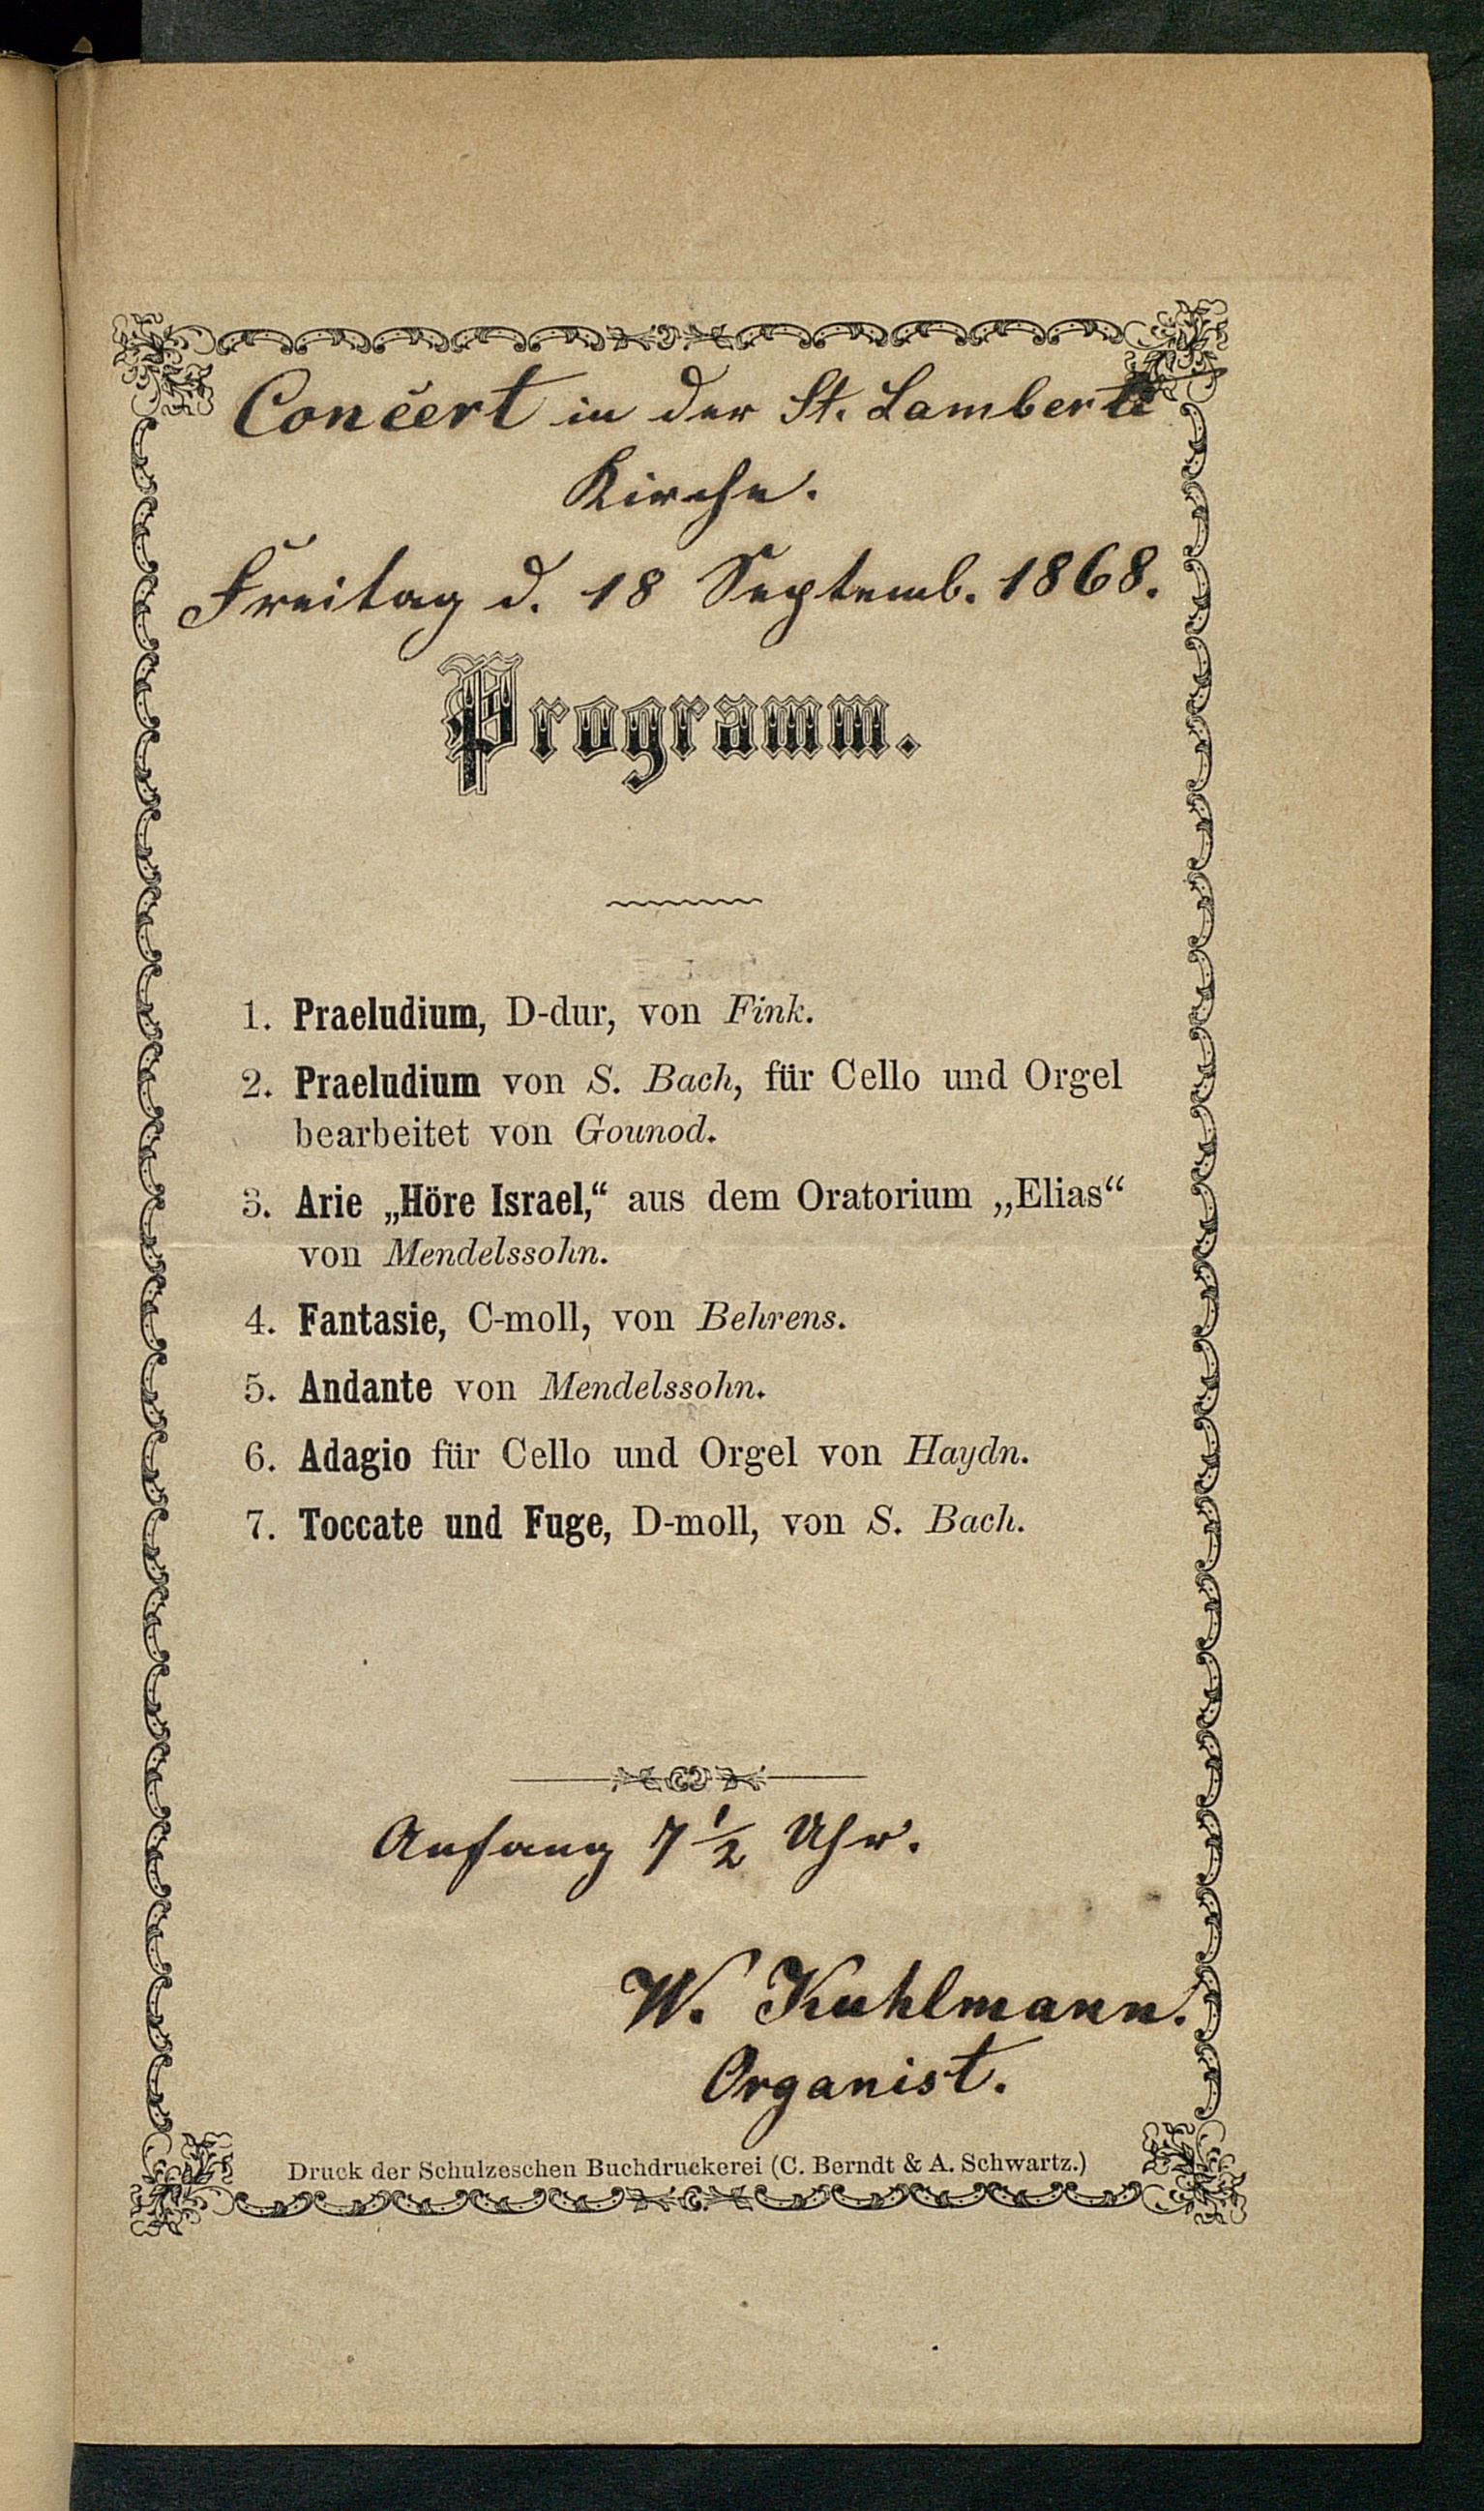 Concert in der St. Lamberti
Kirche.
Freitag d. 18 Septemb. 1868.
Programm.
1. Praeludium, D-dur, von Fink.
2. Praeludium von S. Bach, für Cello und Orgel
bearbeitet von Gounod.
3. Arie „Höre Israel,“ aus dem Oratorium „Elias“
von Mendelssohn.
4. Fantasie, C-moll, von Behrens.
5. Andante von Mendelssohn.
6. Adagio für Cello und Orgel von Haydn.
7. Toccate und Fuge, D-moll, von S. Bach.
Anfang 7 1/2 Uhr.
W. Kuhlmann.
Organist.
Druck der Schulzeschen Buchdruckerei (C. Berndt & A. Schwartz.)